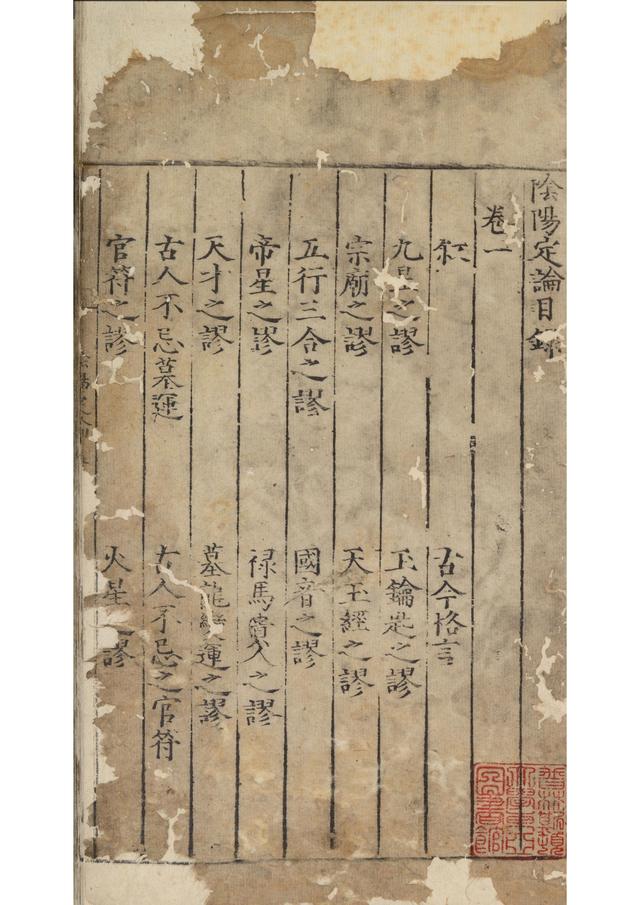 陰陽定論目錄
卷一
古今格言
九星之謬 玉鑰匙之謬
宗廟之謬 天玉經之謬
五行三合之謬 國音之謬
帝星之謬 祿馬貴人之謬
天才之謬 墓龍變運之謬
古人不忌墓運 古人不忌之官符
官符之謬 火星之謬
普林斯頓
大學東亞
圖書館